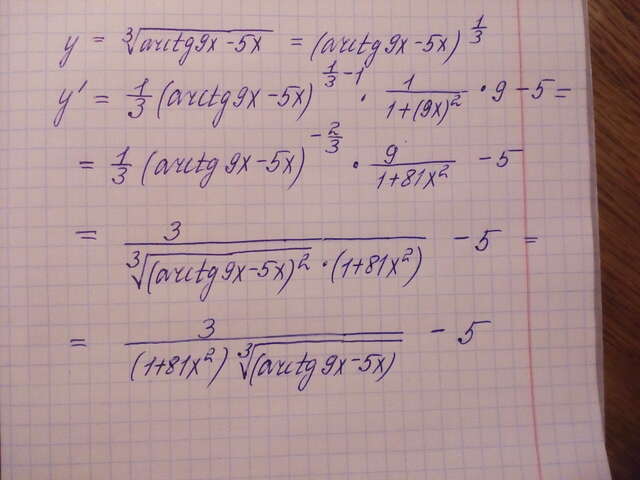 y = ∛(arctg9x-5x) = (arctg9x-5x)^(1/3)
y' = 1/3 (arctg9x-5x)^(1/3-1) · 1/(1+(9x)²) · 9-5=
= 1/3 (arctg9x-5x)^(-2/3) · 9/(1+81x²) -5
= 3/(∛((arctg9x-5x)²) · (1+81x²)) -5 =
= 3/((1+81x²) ∛(arctg9x-5x)) -5